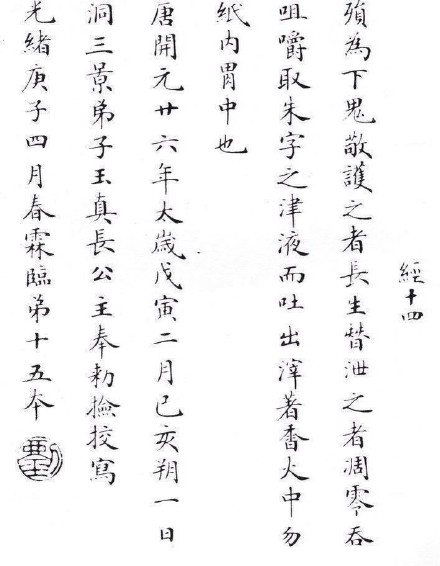 經十四
殞為下鬼敬護之者長生替泄之者凋零吞
咀嚼取朱字之津液而吐出滓著香火中勿
紙内胃中也
唐開元廿六年太歲戊寅二月己亥朔一日
洞三景弟子玉真長公主奉勑撿挍寫
光緒庚子四月春霖臨弟十五本